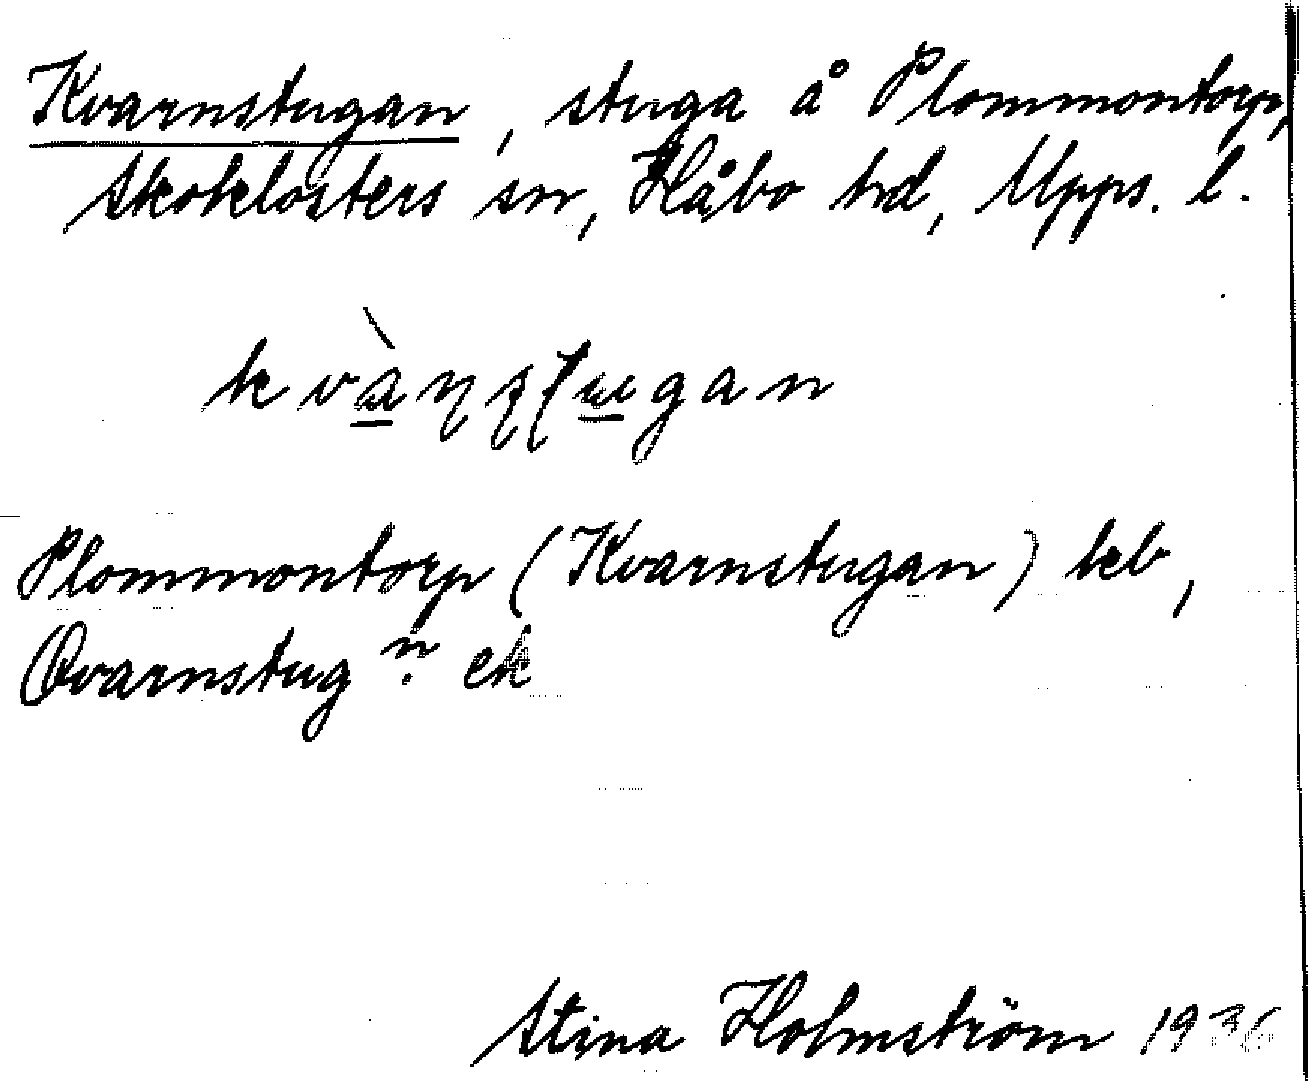 Kvarnstugan, stuga å Plommontorp,
Skoklosters sn, Håbo hd, Upps. l.
kvàɳʂʈugan
Plommontorp (Kvarnstugan) keb,
Qvarnstugn. ek
Stina Holmström 1936